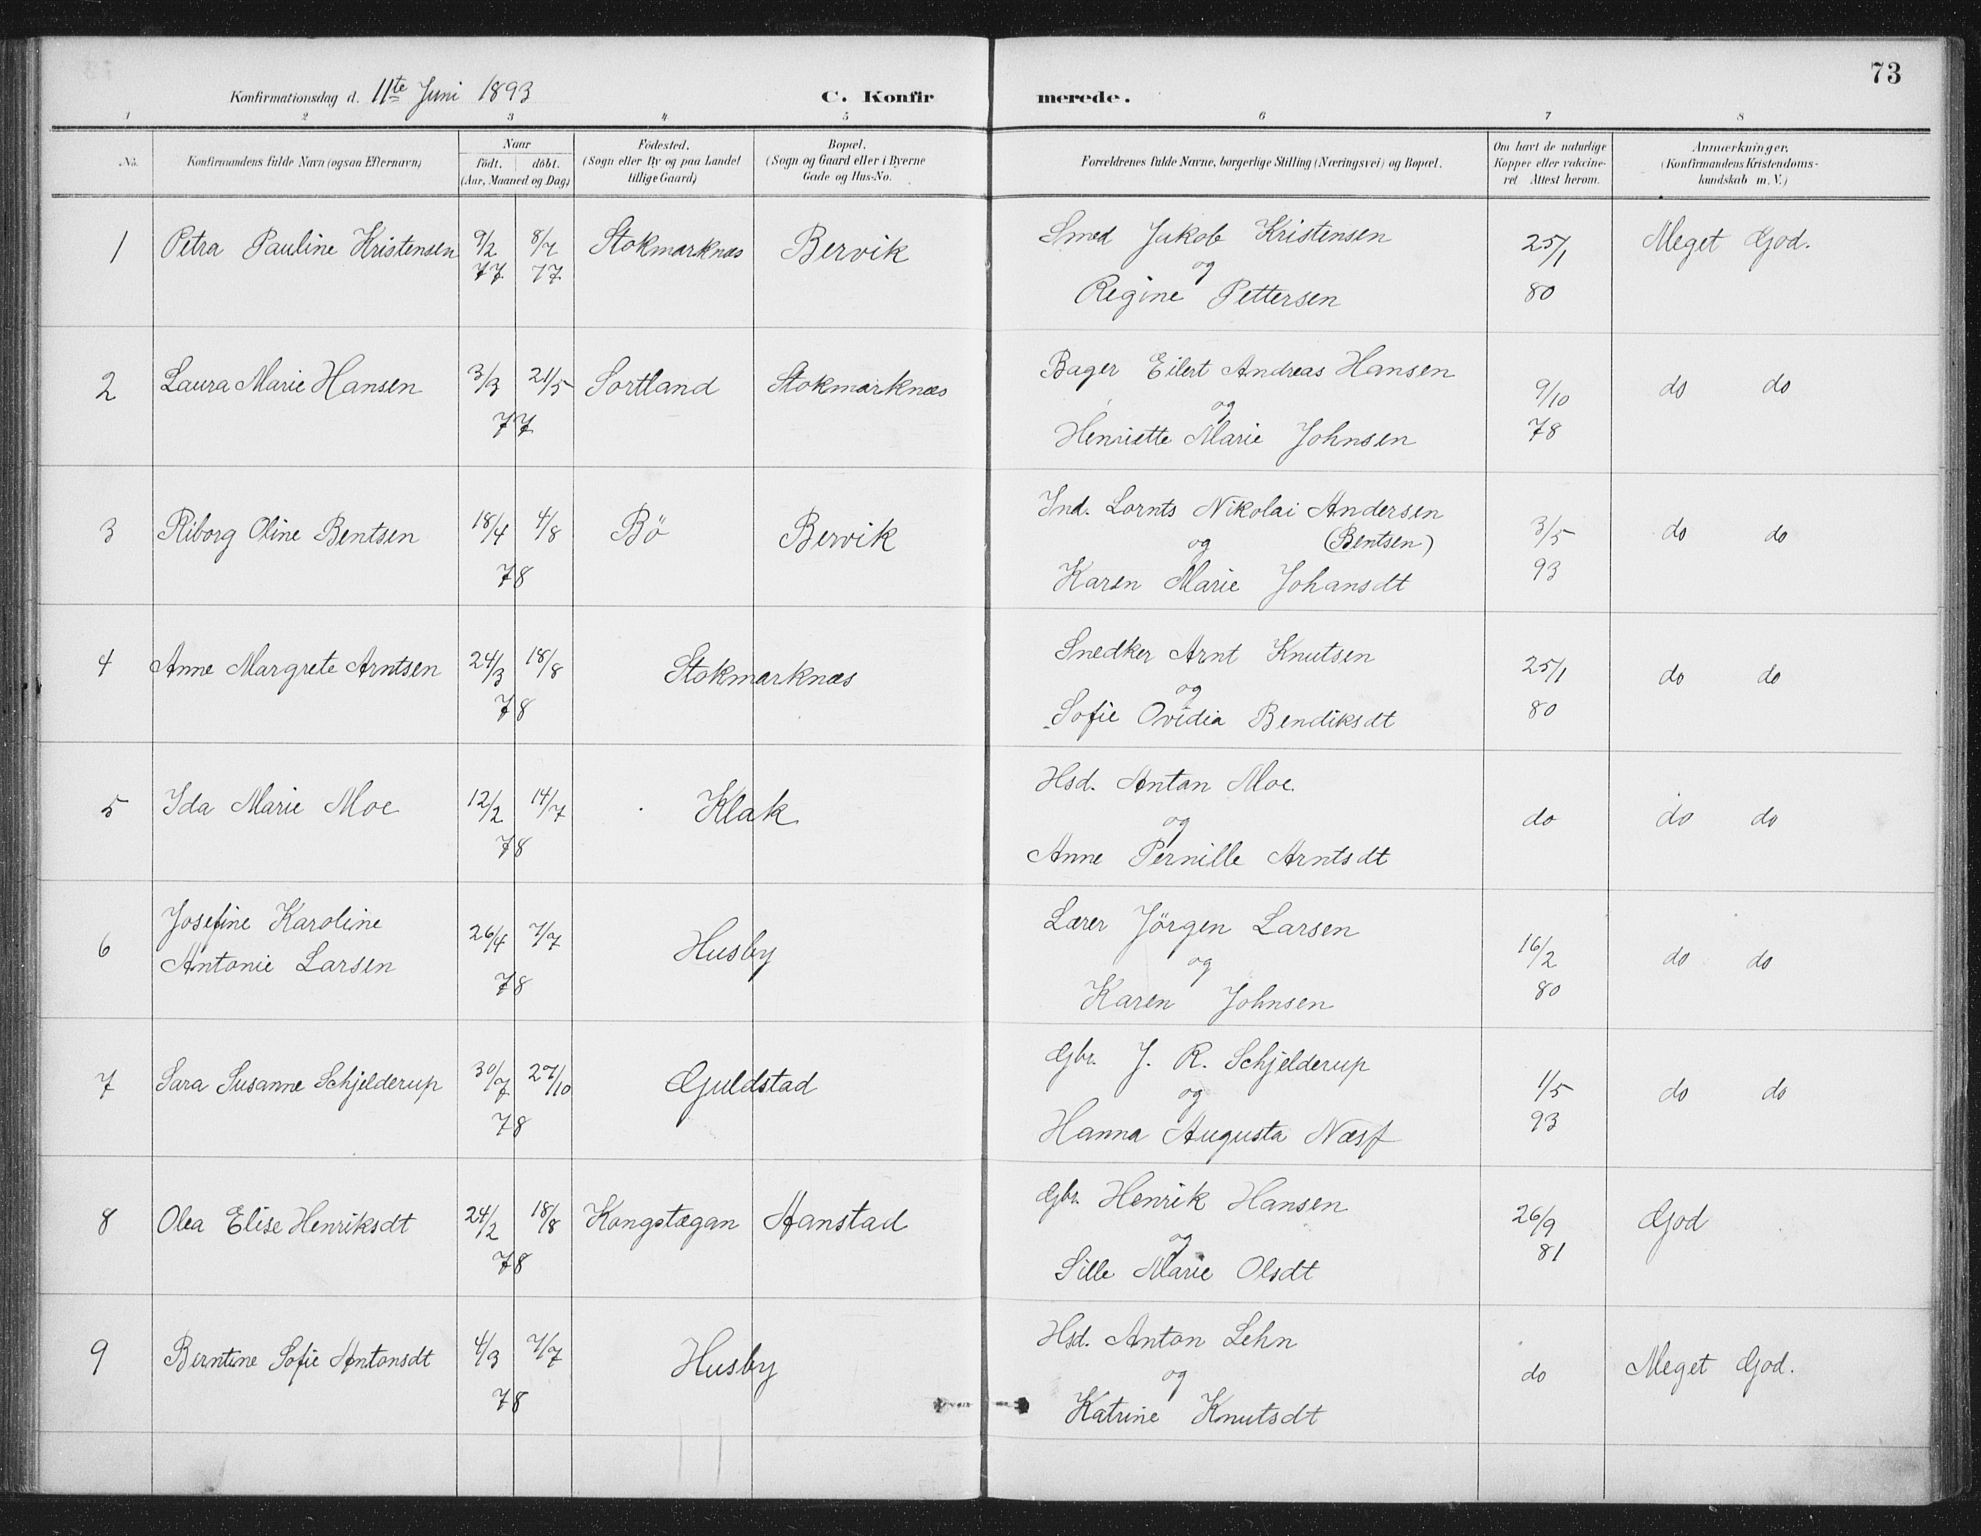 73
Konfirmationsdag d. 11te Juni 1893 C. Konfirmerede.
1 2 3 4 5 6 7 8
No. Konfirmandens fulde Navn (ogsaa Efternavn) Naar födt. döbt. (Aar, Maaned og Dag) Födested. (Sogn eller By og paa Landet tillige Gaard) Bopæl. (Sogn og Gaard eller i Byerne Gade og Hus-No. Forældrenes fulde Navne, borgerlige Stilling (Næringsvei) og Bopæl. Om havt de naturlige Kopper eller vakcineret Attest herom. Anmærkninger. (Konfirmandens Kristendomskundskab m. V.)
1 Petra Pauline Kristensen 9/2 77 8/7 77 Stokmarknæs Bervik Smed Jakob Kristensen og Regine Pettersen 25/1 80 Meget God.
2 Laura Marie Hansen 3/3 21/5 77 Sortland Stokmarknæs Bager Eilert Andreas Hansen og Henriette Marie Johnsen 9/10 78 do do
3 Riborg Oline Bentsen 18/4 4/8 78 Bö Bervik Ind. Lornts Nikolai Andersen (Bentsen) og Karen Marie Johansdt 3/5 93 do do
4 Anne Margrete Arntsen 24/3 18/8 78 Stokmarknæs Snedker Arnt Knutsen og Sofie Ovidia Bendiksdt 25/1 80 do do
5 Ida Marie Moe 12/2 14/7 78 Klak Hsd. Anton Moe. og Anne Pernille Arntsdt do do do
6 Josefine Karoline Antonie Larsen 26/4 7/7 78 Husby Lærer Jörgen Larsen og Karen Johnsen 16/2 80 do do
7 Sara Susanne Schjelderup 30/7 27/10 78 Guldstad Gbr. J. R. Schjelderup og Hanna Augusta Næsf 1/5 93 do do
8 Olea Elise Henriksdt 24/2 18/8 78 Kongstægan Hanstad Gbr. Henrik Hansen og Sille Marie Olsdt 26/9 81 God
9 Berntine Sofie Antonsdt 4/3 7/7 78 Husby Hsd. Anton Lehn og Katrine Knutsdt do Meget God.